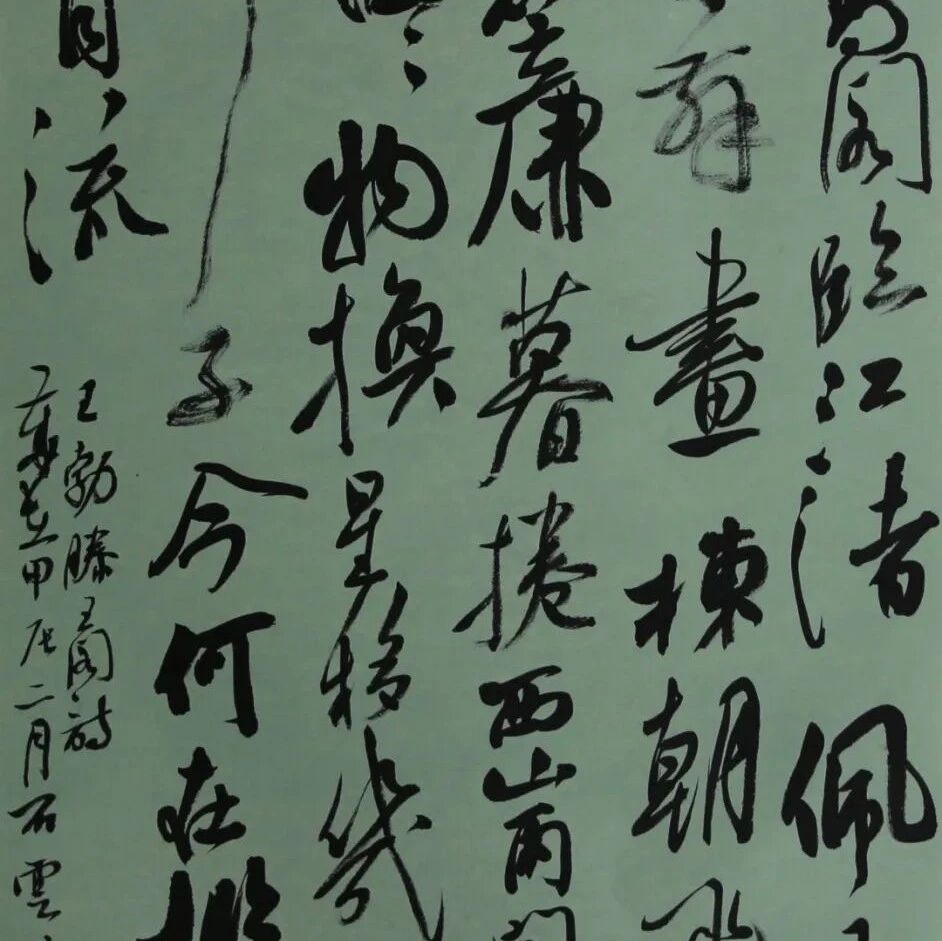 閣臨江渚佩
舞畫棟朝飛
簾暮捲西山雨閒
物換星移幾
子今何在檻
自流
王勃滕王閣詩
歲在甲辰二月石雲